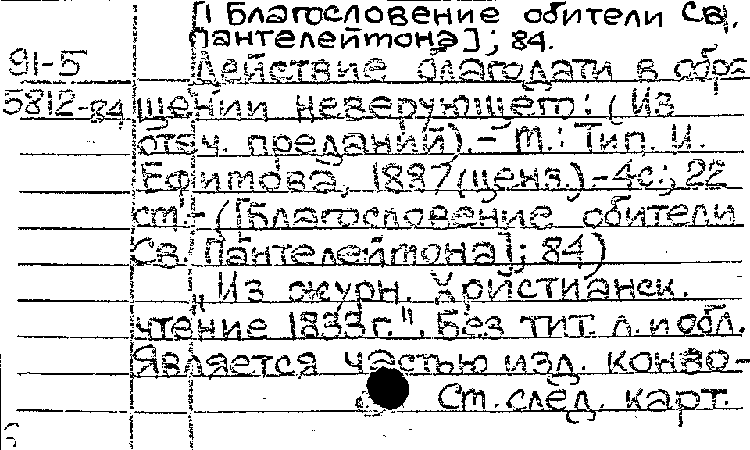 [1 Благословение обители Св.
Пантелеймона]; 84.
91-5 Действие благодати в обра-
5812-84 щении неверующего: (Из
отеч. преданий).- М.: Тип. И.
Ефимова, 1887(ценз.).-4с.; 22
см.- ([Благословение обители
Св. Пантелеймона]; 84)
„Из журн. Христианск.
чтение 1833г.". Без тит. л. и обл.
Является частью изд. конво-
См. след. карт.